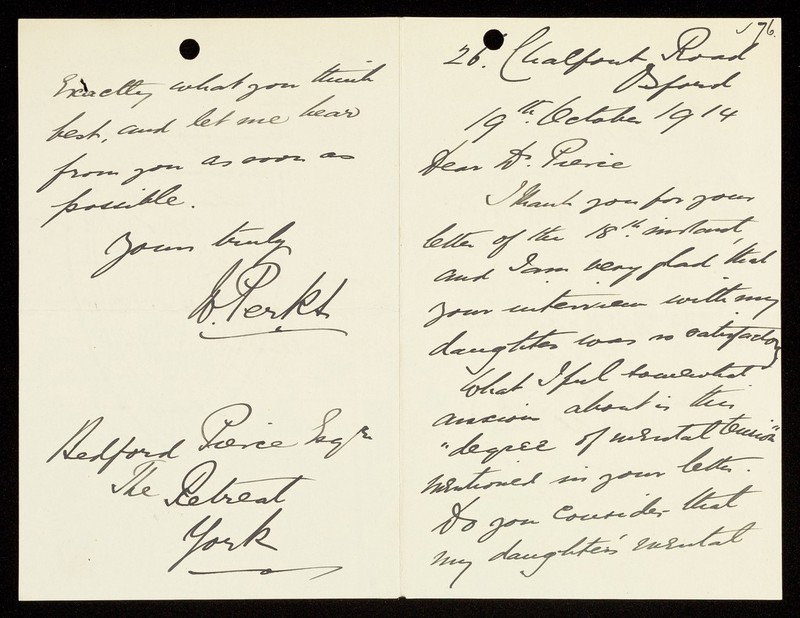 576.
26. Chalfont Road
Oxford
19th. October 1914
Dear Dr. Pierce
I thank you for your
letter of the 18th. instant,
and I am very glad that
your interview with my
daughter was so satisfactory
What I feel somewhat
anxious about is this
"degree of mental tension"
mentioned in your letter.
Do you consider that
my daughter's mental
Exactly what you think
best, and let me hear
from you as soon as
possible.
Yours truly
W. Perks
Bedford Pierce Esqre
The Retreat
York